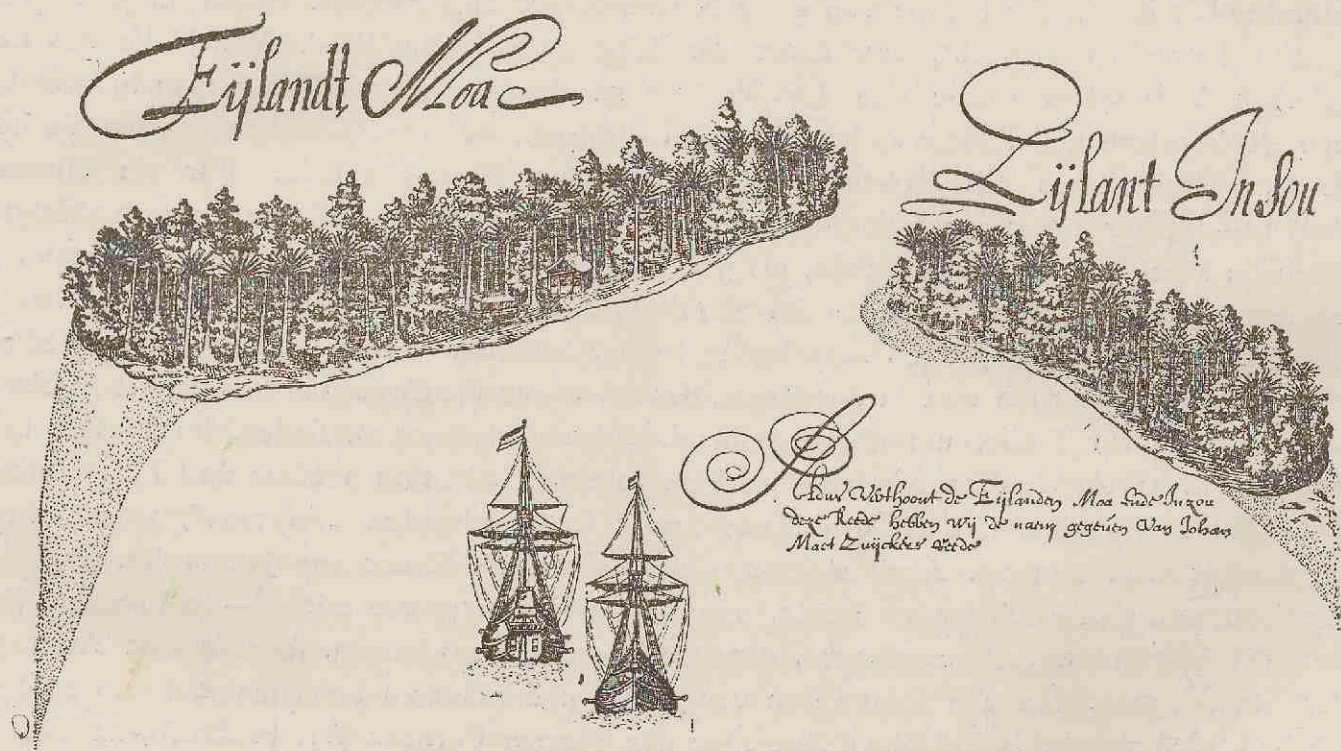 Eijlandt Moa
Eijlant Insou
Aldus Verthoont de Eijlanden Moa ende Inzou
deze Reede hebben wij de naem gegeven Van Iohan
Maet Zuijckers reede